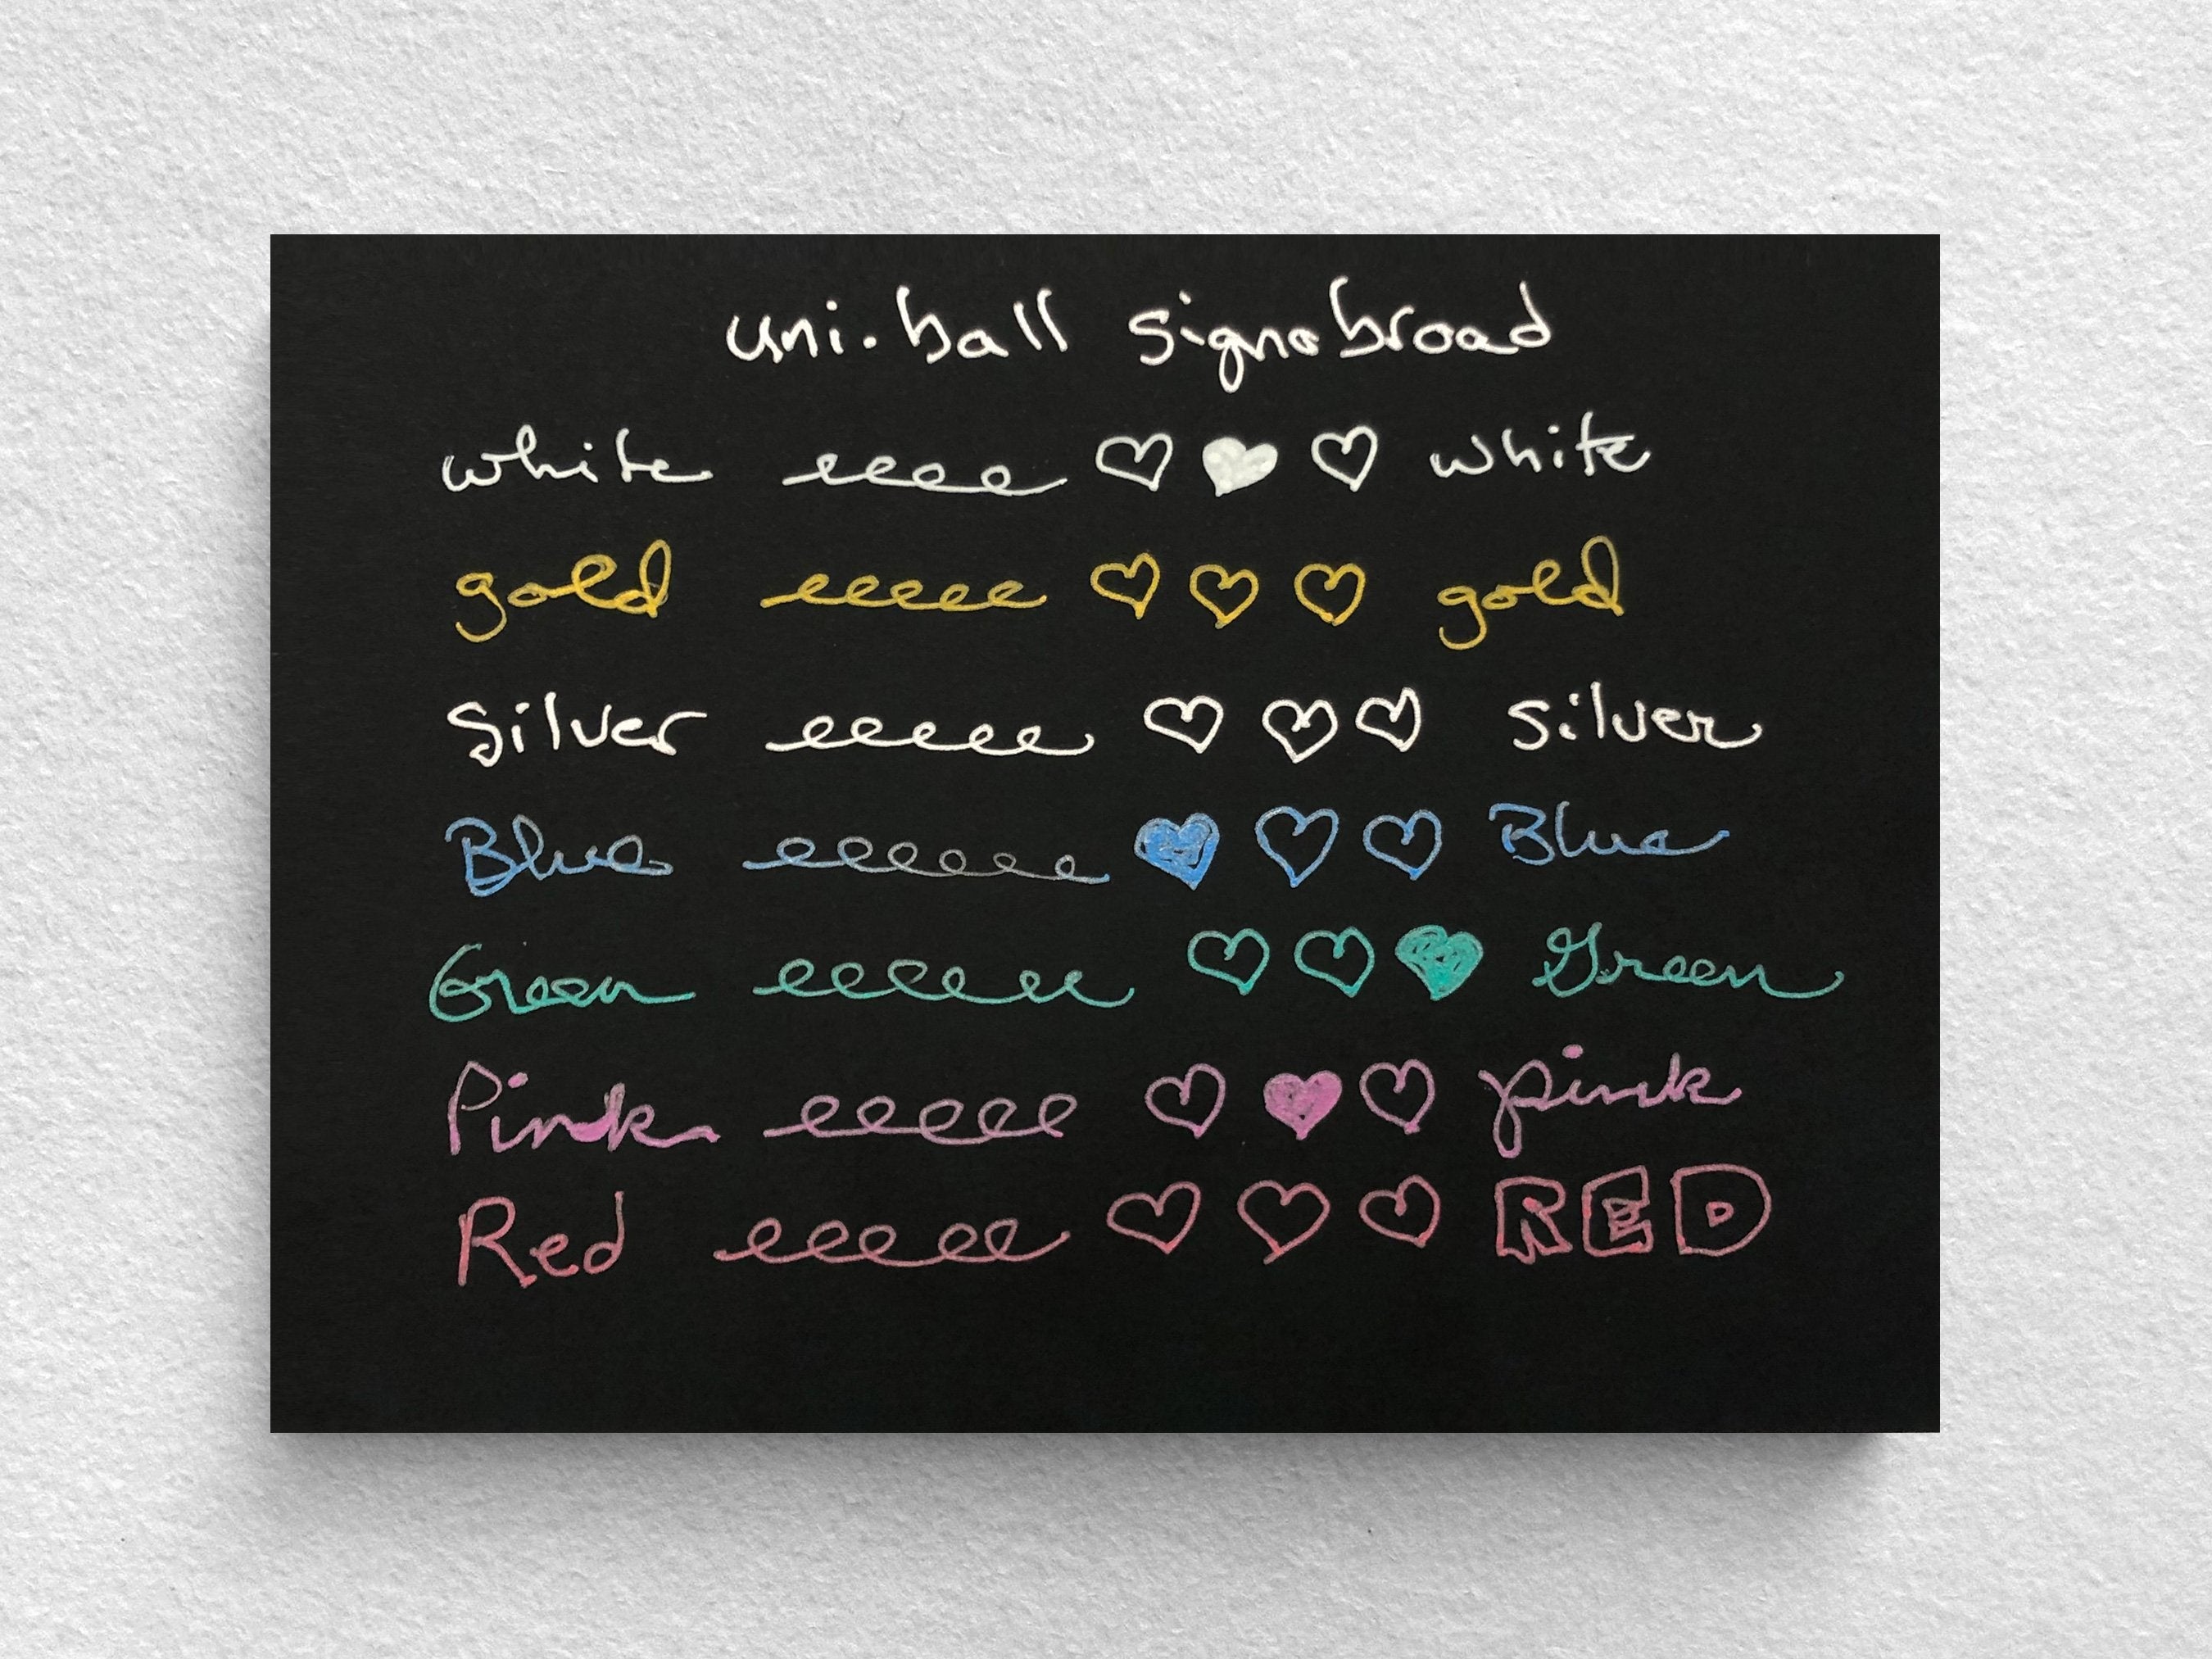 uni-ball signo broad
white eeee ♡ ♥ ♡ white
gold eeeee ♡ ♡ ♡ gold
silver eeeee ♡ ♡ ♡ silver
Blue eeeeee ♥ ♡ ♡ Blue
Green eeeeee ♡ ♡ ♥ Green
Pink eeeee ♡ ♥ ♡ pink
Red eeeee ♡ ♡ ♡ RED